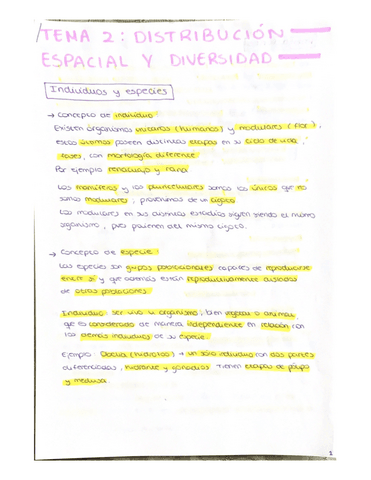 TEMA 2: DISTRIBUCIÓN
ESPACIAL Y DIVERSIDAD
Individuos y especies
→ Concepto de individuo:
Existen organismos unitarios (humanos) y modulares (Flor),
estos últimos poseen distintas etapas en su ciclo de vida,
fases, con morfología diferente.
Por ejemplo renacuajo y rana
Los mamíferos y los pluricelulares somos los únicos que no
somos modulares, provenimos de un cigoto
Los modulares en sus distintos estadios siguen siendo el mismo
organismo, pues provienen del mismo cigoto.
→ Concepto de especie:
Las especies son grupos poblacionales capaces de reproducirse
entre sí y que además están reproductivamente aislados
de otras poblaciones.
Individuo: ser vivo u organismo, bien vegetal o animal,
que es considerado de manera independiente en relación con
los demás individuos de su especie.
Ejemplo (hidrozoo) → un solo individuo con dos partes
diferenciadas, hidrante y gonadios. Tienen etapas de pólipo
y medusa.
1